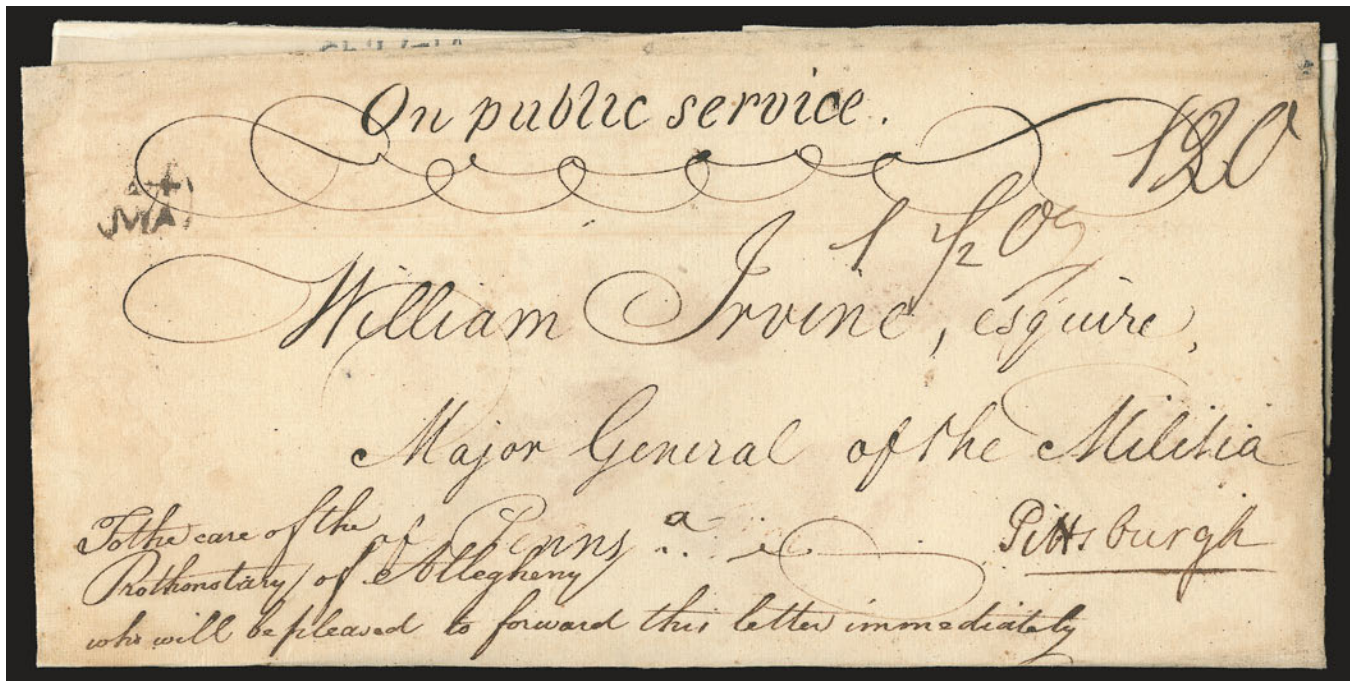 On public service.
120
MA
1 1/2 Oz
William Irvine, esquire,
Major General of the Militia
of Penns.a
Pittsburgh
To the care of the
Prothonotary of Allegheny
who will be pleased to forward this letter immediately